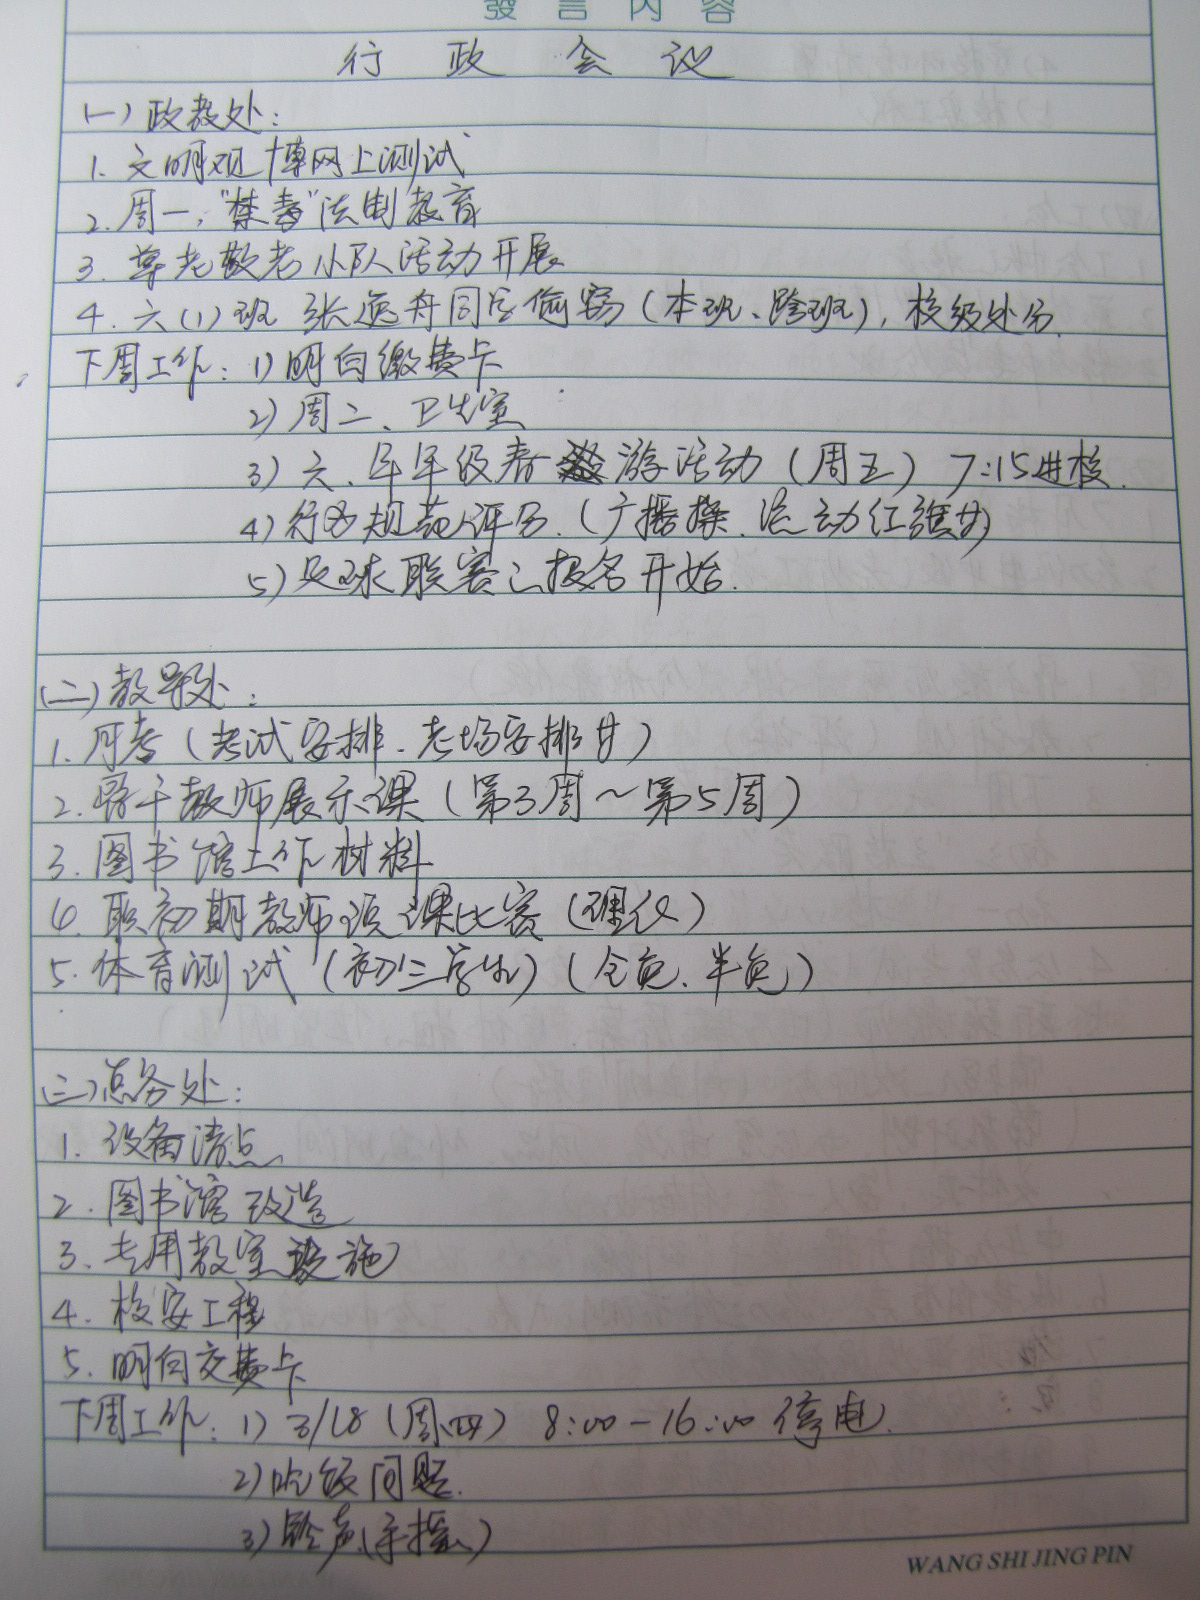 發言內容
行政会议
(一)政教处:
1. 文明观博网上测试
2. 周一,"禁毒"法制教育
3. 尊老敬老小队活动开展
4. 六(1)班 张逸舟同学偷窃(本班、跨班),校级处分.
下周工作: 1) 明白缴费卡
2) 周二、卫生室
3) 六、年级春游活动(周五) 7:15进校.
4) 行为规范评分.(广播操.流动红旗)
5) 足球联赛报名开始.
(二)教导处:
1. 月考(考试安排.考场安排)
2. 骨干教师展示课(第3周~第5周)
3. 图书馆工作材料
4. 职初期教师说课比赛(理化)
5. 体育测试(初三学生)(全免、半免)
(三)总务处:
1. 设备清点
2. 图书馆改造
3. 专用教室设施
4. 校安工程
5. 明白交费卡
下周工作: 1) 3/18(周四) 8:00-16:00停电.
2) 吃饭问题.
3) 铃声(手摇)
WANG SHI JING PIN